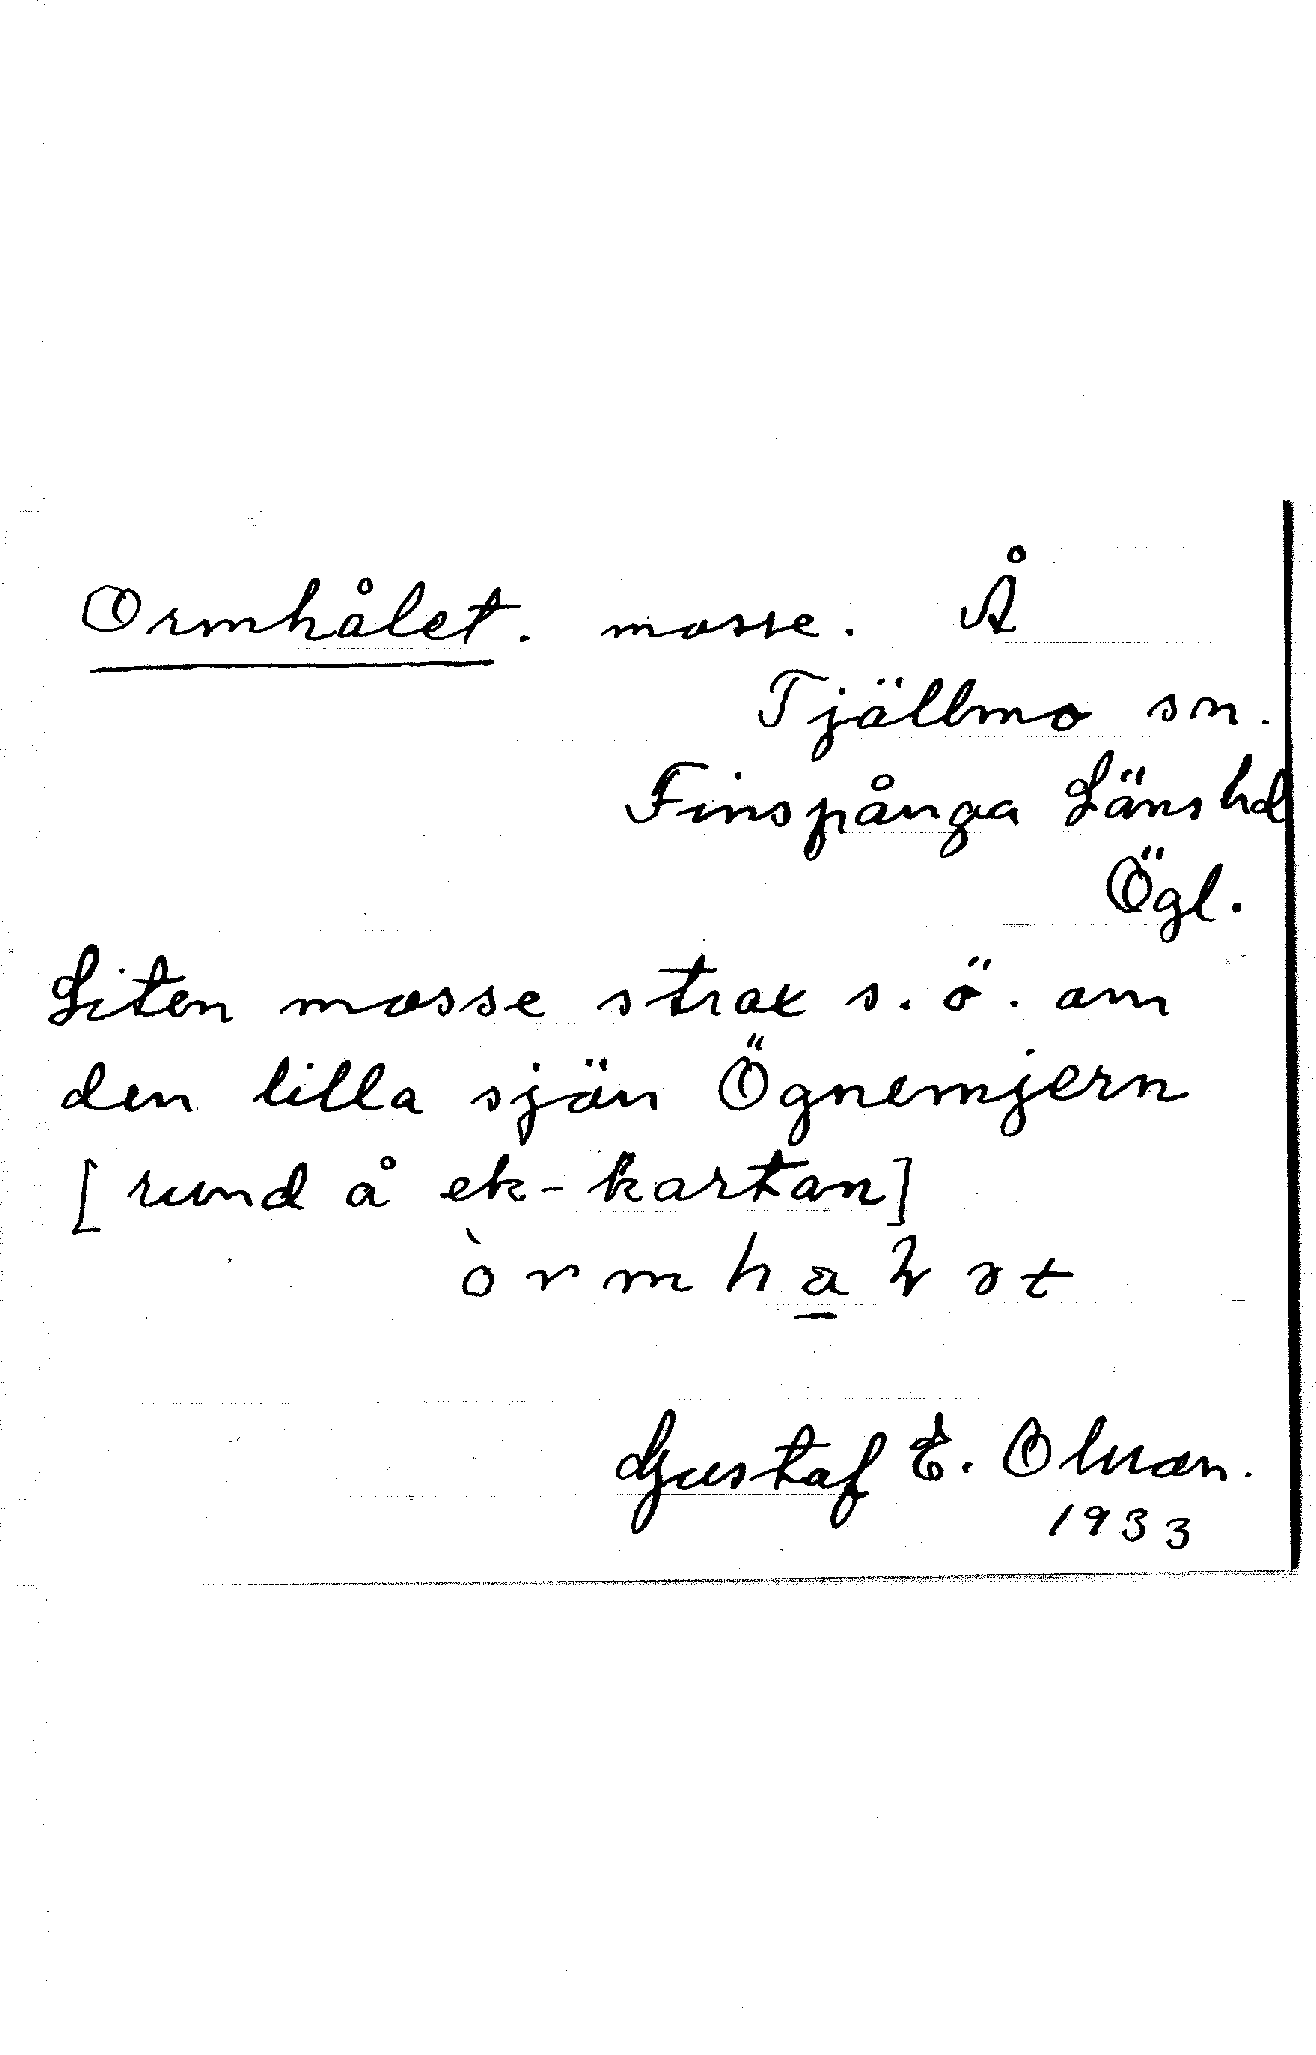 Ormhålet. mosse. Å
Tjällmo sn.
Finspånga Läns hd
Ögl.
Liten mosse strax s. ö. om
den lilla sjön Ögnemjern
[rund å ek-kartan]
Gustaf E. Olson.
1933